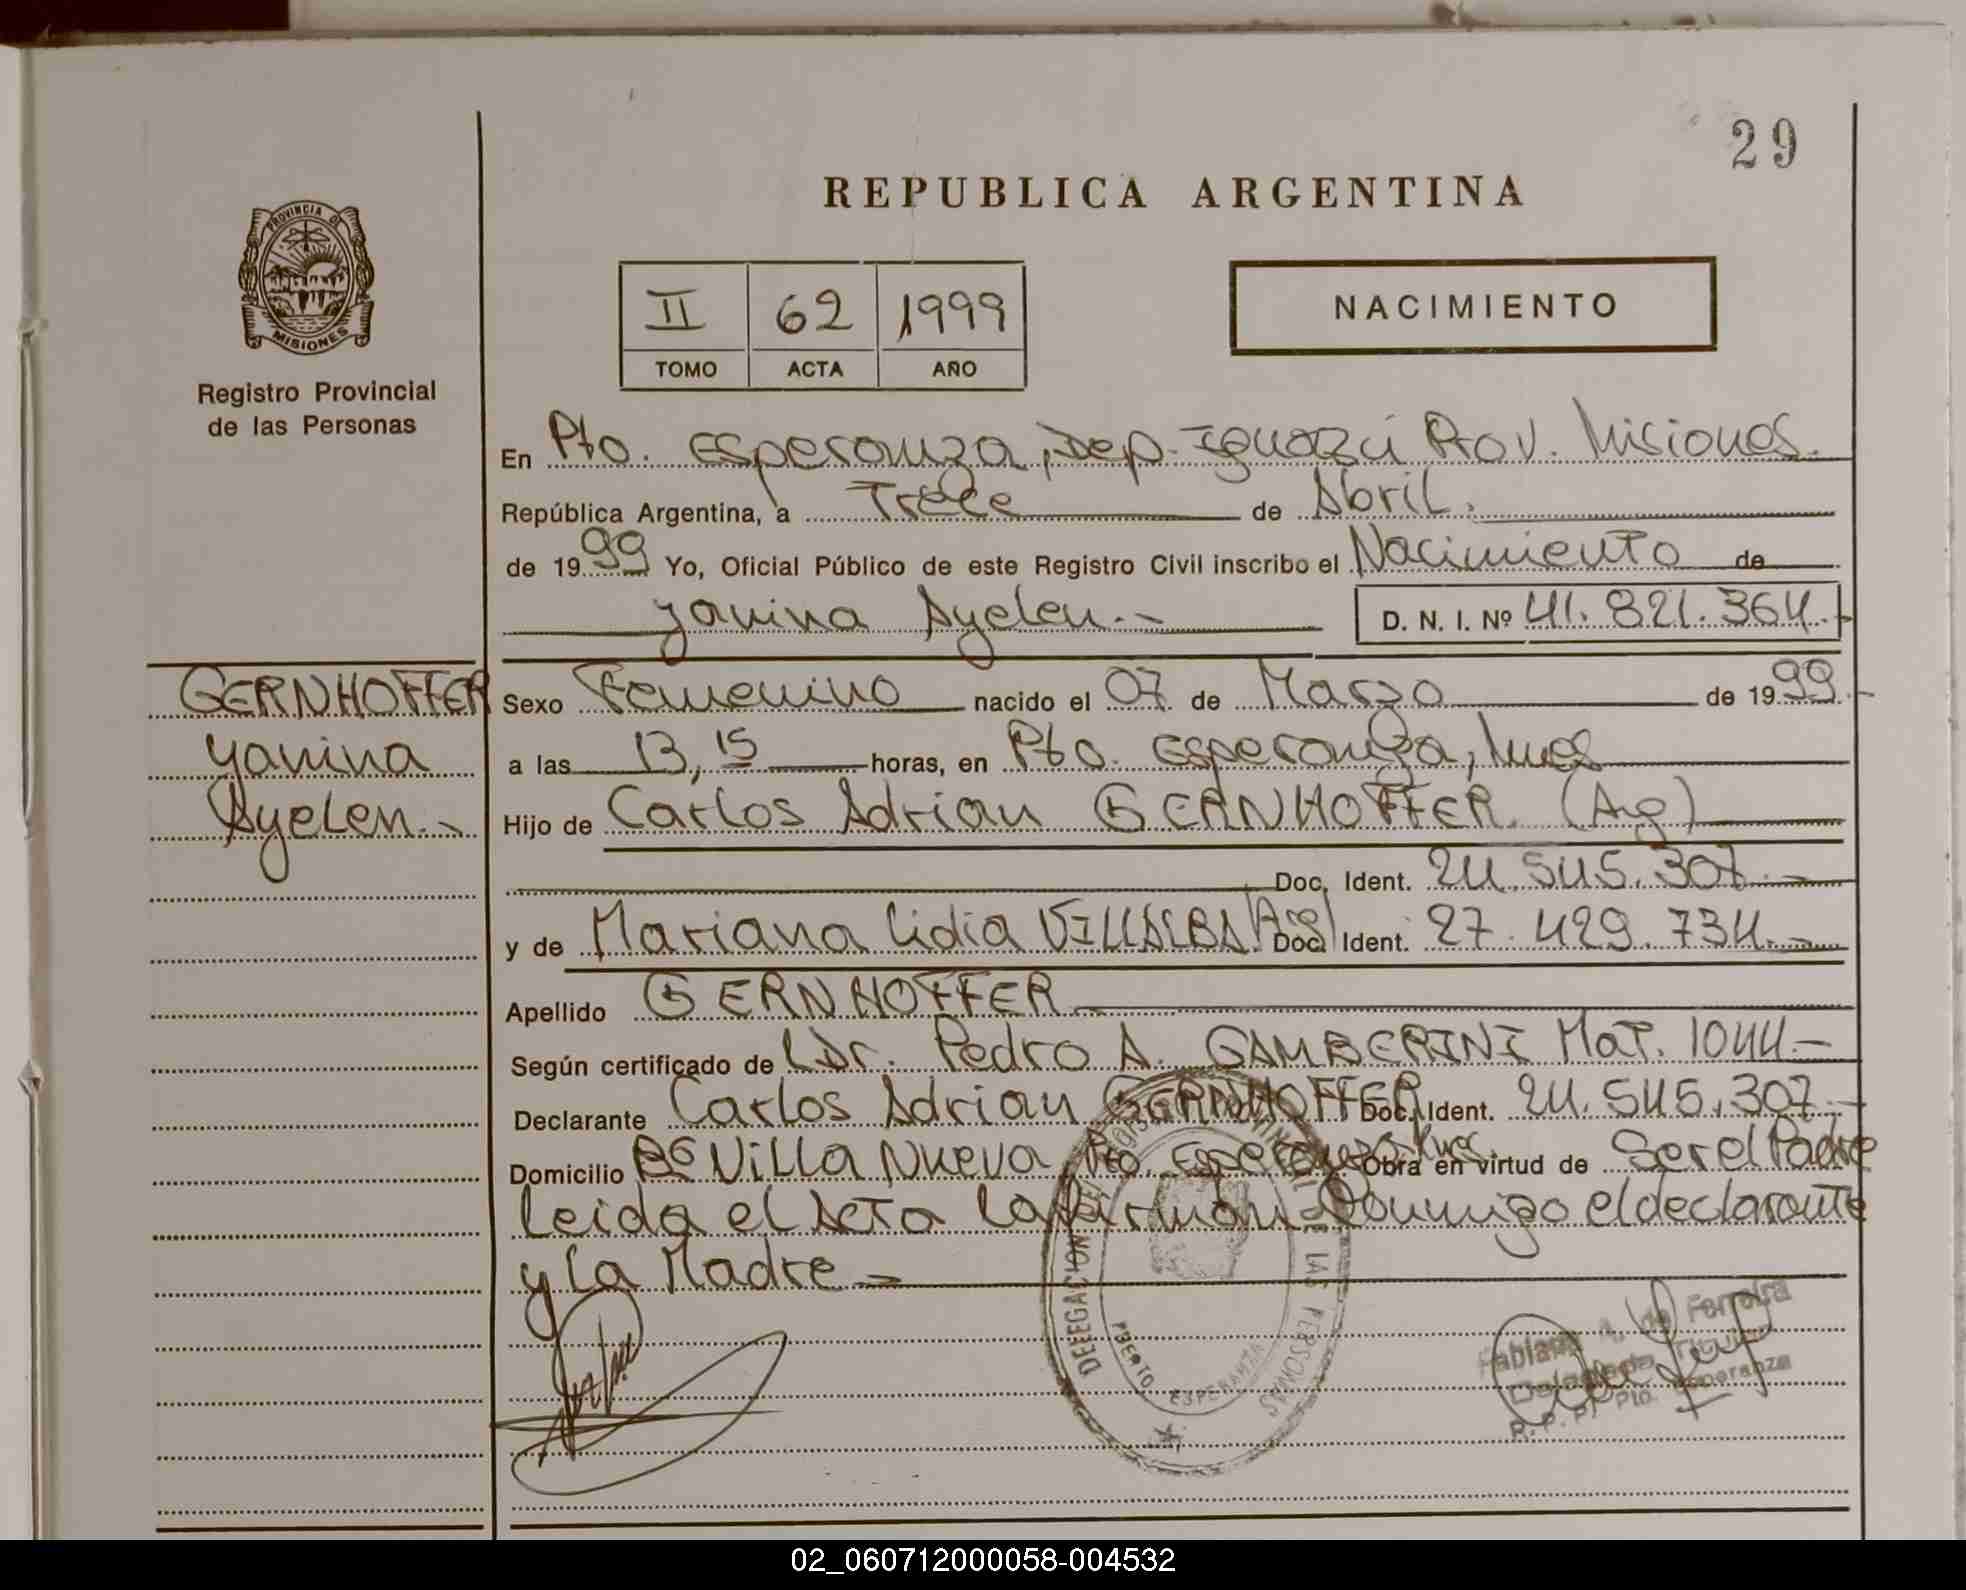 29
REPUBLICA ARGENTINA
PROVINCIA DE
MISIONES
Registro Provincial
de las Personas
II 62 1999
TOMO ACTA AÑO
NACIMIENTO
En Pto. Esperanza, Dep. Iguazú Prov. Misiones.
República Argentina, a Trece de Abril.
de 1999 Yo, Oficial Público de este Registro Civil inscribo el Nacimiento de
Yanina Ayelen.- D. N. I. Nº 41.821.364.-
GERNHOFFER
Yanina
Ayelen.-
Sexo Femenino nacido el 07 de Marzo de 1999.-
a las 13,15 horas, en Pto. Esperanza, Mnes
Hijo de Carlos Adrian GERNHOFFER. (Arg)
Doc. Ident. 24.545.307.-
y de Mariana Lidia VILLALBA (Arg) Doc. Ident. 27.429.734.-
Apellido GERNHOFFER
Según certificado de Dr. Pedro A. GAMBERINI Mat. 1044.-
Declarante Carlos Adrian GERNHOFFER Doc. Ident. 24.545.307.-
Domicilio Bº Villa Nueva Pto. Esperanza Mnes. Obra en virtud de Ser el Padre
Leida el Acta la firman Conmigo el declarante
y la Madre =
DELEGACION DE LAS PERSONAS
PUERTO ESPERANZA
Fabiana A. de Ferreira
Delegada Titular
R. P. P. Pto. Esperanza
02_060712000058-004532